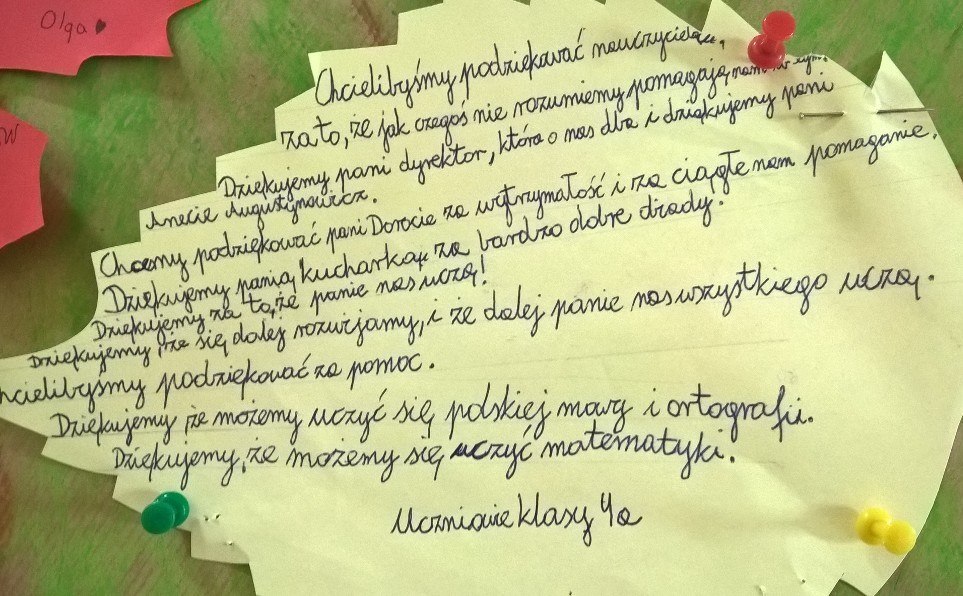 Olga
w
Chcielibyśmy podziękować nauczycielom,
za to, że jak czegoś nie rozumiemy pomagają nam w tym.
Dziękujemy pani dyrektor, która o nas dba i dziękujemy pani
Anecie Augustynowicz.
Chcemy podziękować pani Dorocie za wytrzymałość i za ciągłe nam pomaganie.
Dziękujemy panią kucharką za bardzo dobre obiady.
Dziękujemy za to, że panie nas uczą!
Dziękujemy, że się dalej rozwijamy, i że dalej panie nas wszystkiego uczą.
hcielibyśmy podziękować za pomoc.
Dziękujemy, że możemy uczyć się polskiej mowy i ortografii.
Dziękujemy, że możemy się uczyć matematyki.
Uczniowie klasy 4a